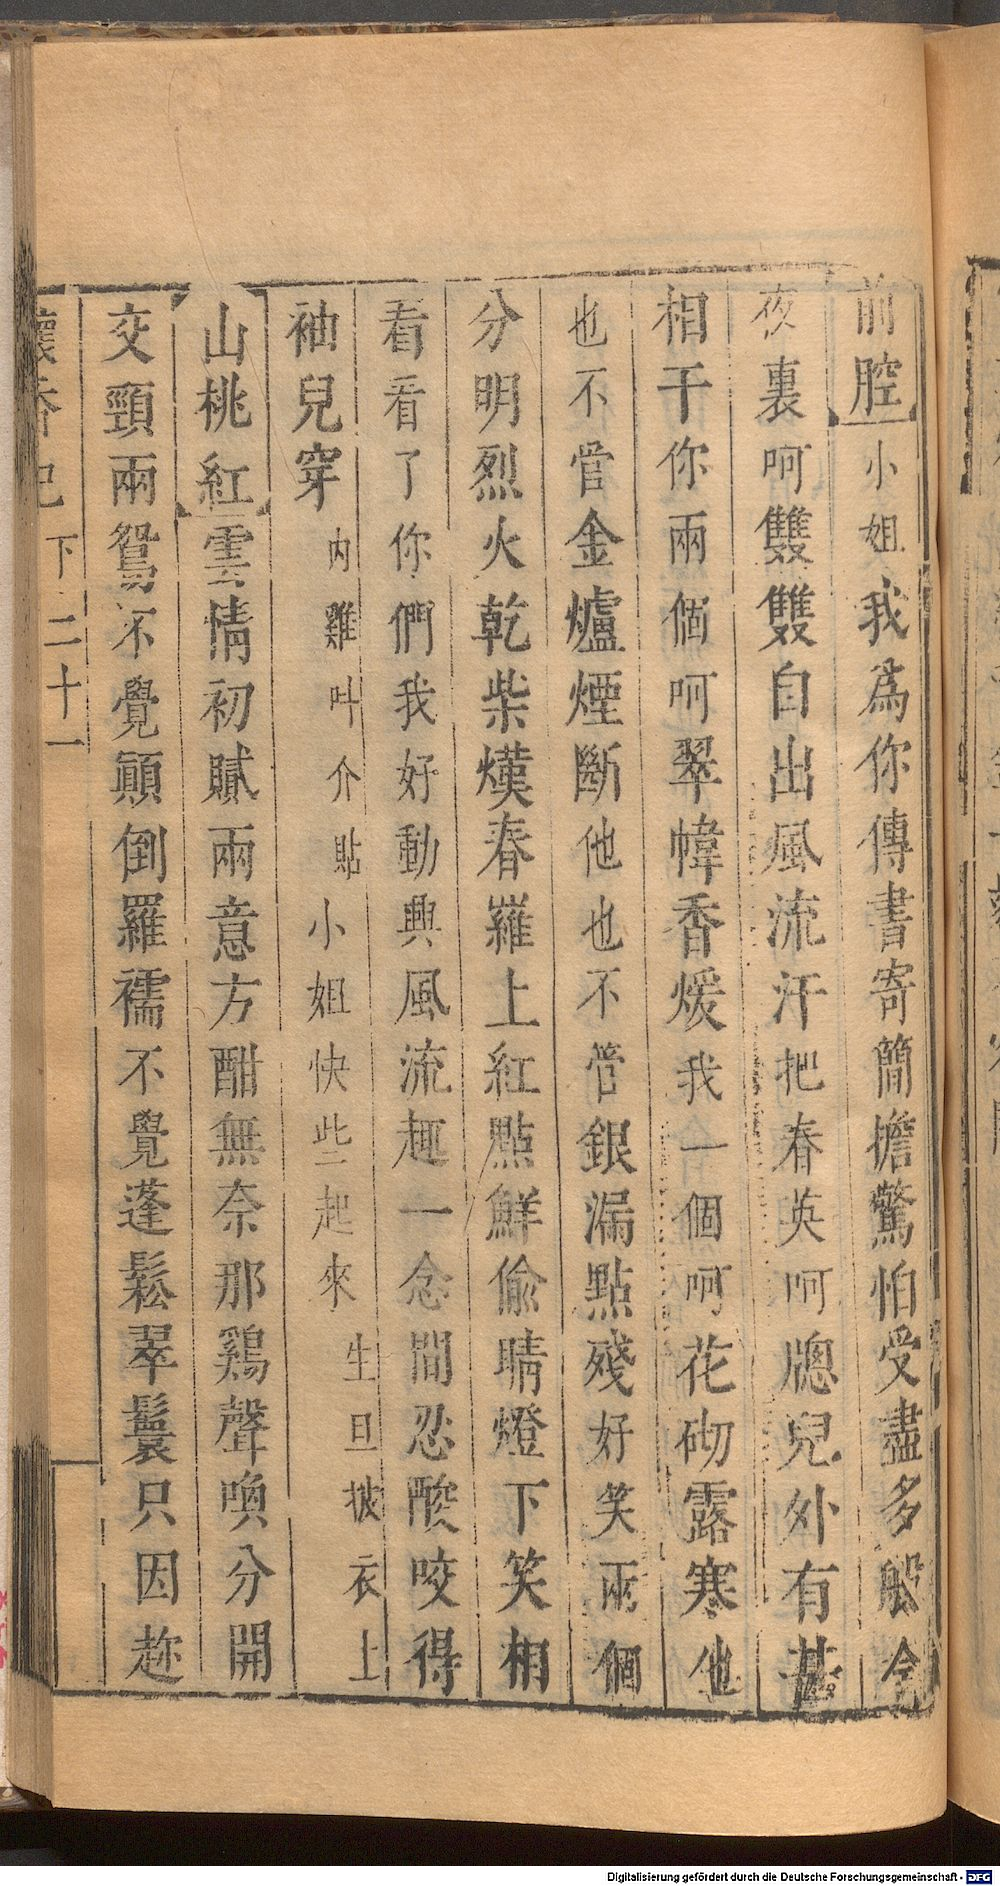 前腔小姐我為你傳書寄簡擔驚怕受盡多般今
夜裏呵雙雙自出風流汗把春英呵牕兒外有甚
相干你兩個呵翠幃香煖我一個呵花砌露寒他
也不管金爐煙斷他也不管銀漏點殘好笑兩個
分明烈火乾柴熯春羅上紅點鮮偷睛燈下笑相
看看了你們我好動興風流趣一念間忍酸咬得
袖兒穿內雞叫介貼小姐快些起來生旦披衣上
山桃紅雲情初膩兩意方酣無奈那鷄聲喚分開
交頸兩鴛不覺顛倒羅襦不覺蓬鬆翠鬟只因趂
懷香記 下 二十一
Digitalisierung gefördert durch die Deutsche Forschungsgemeinschaft - DFG